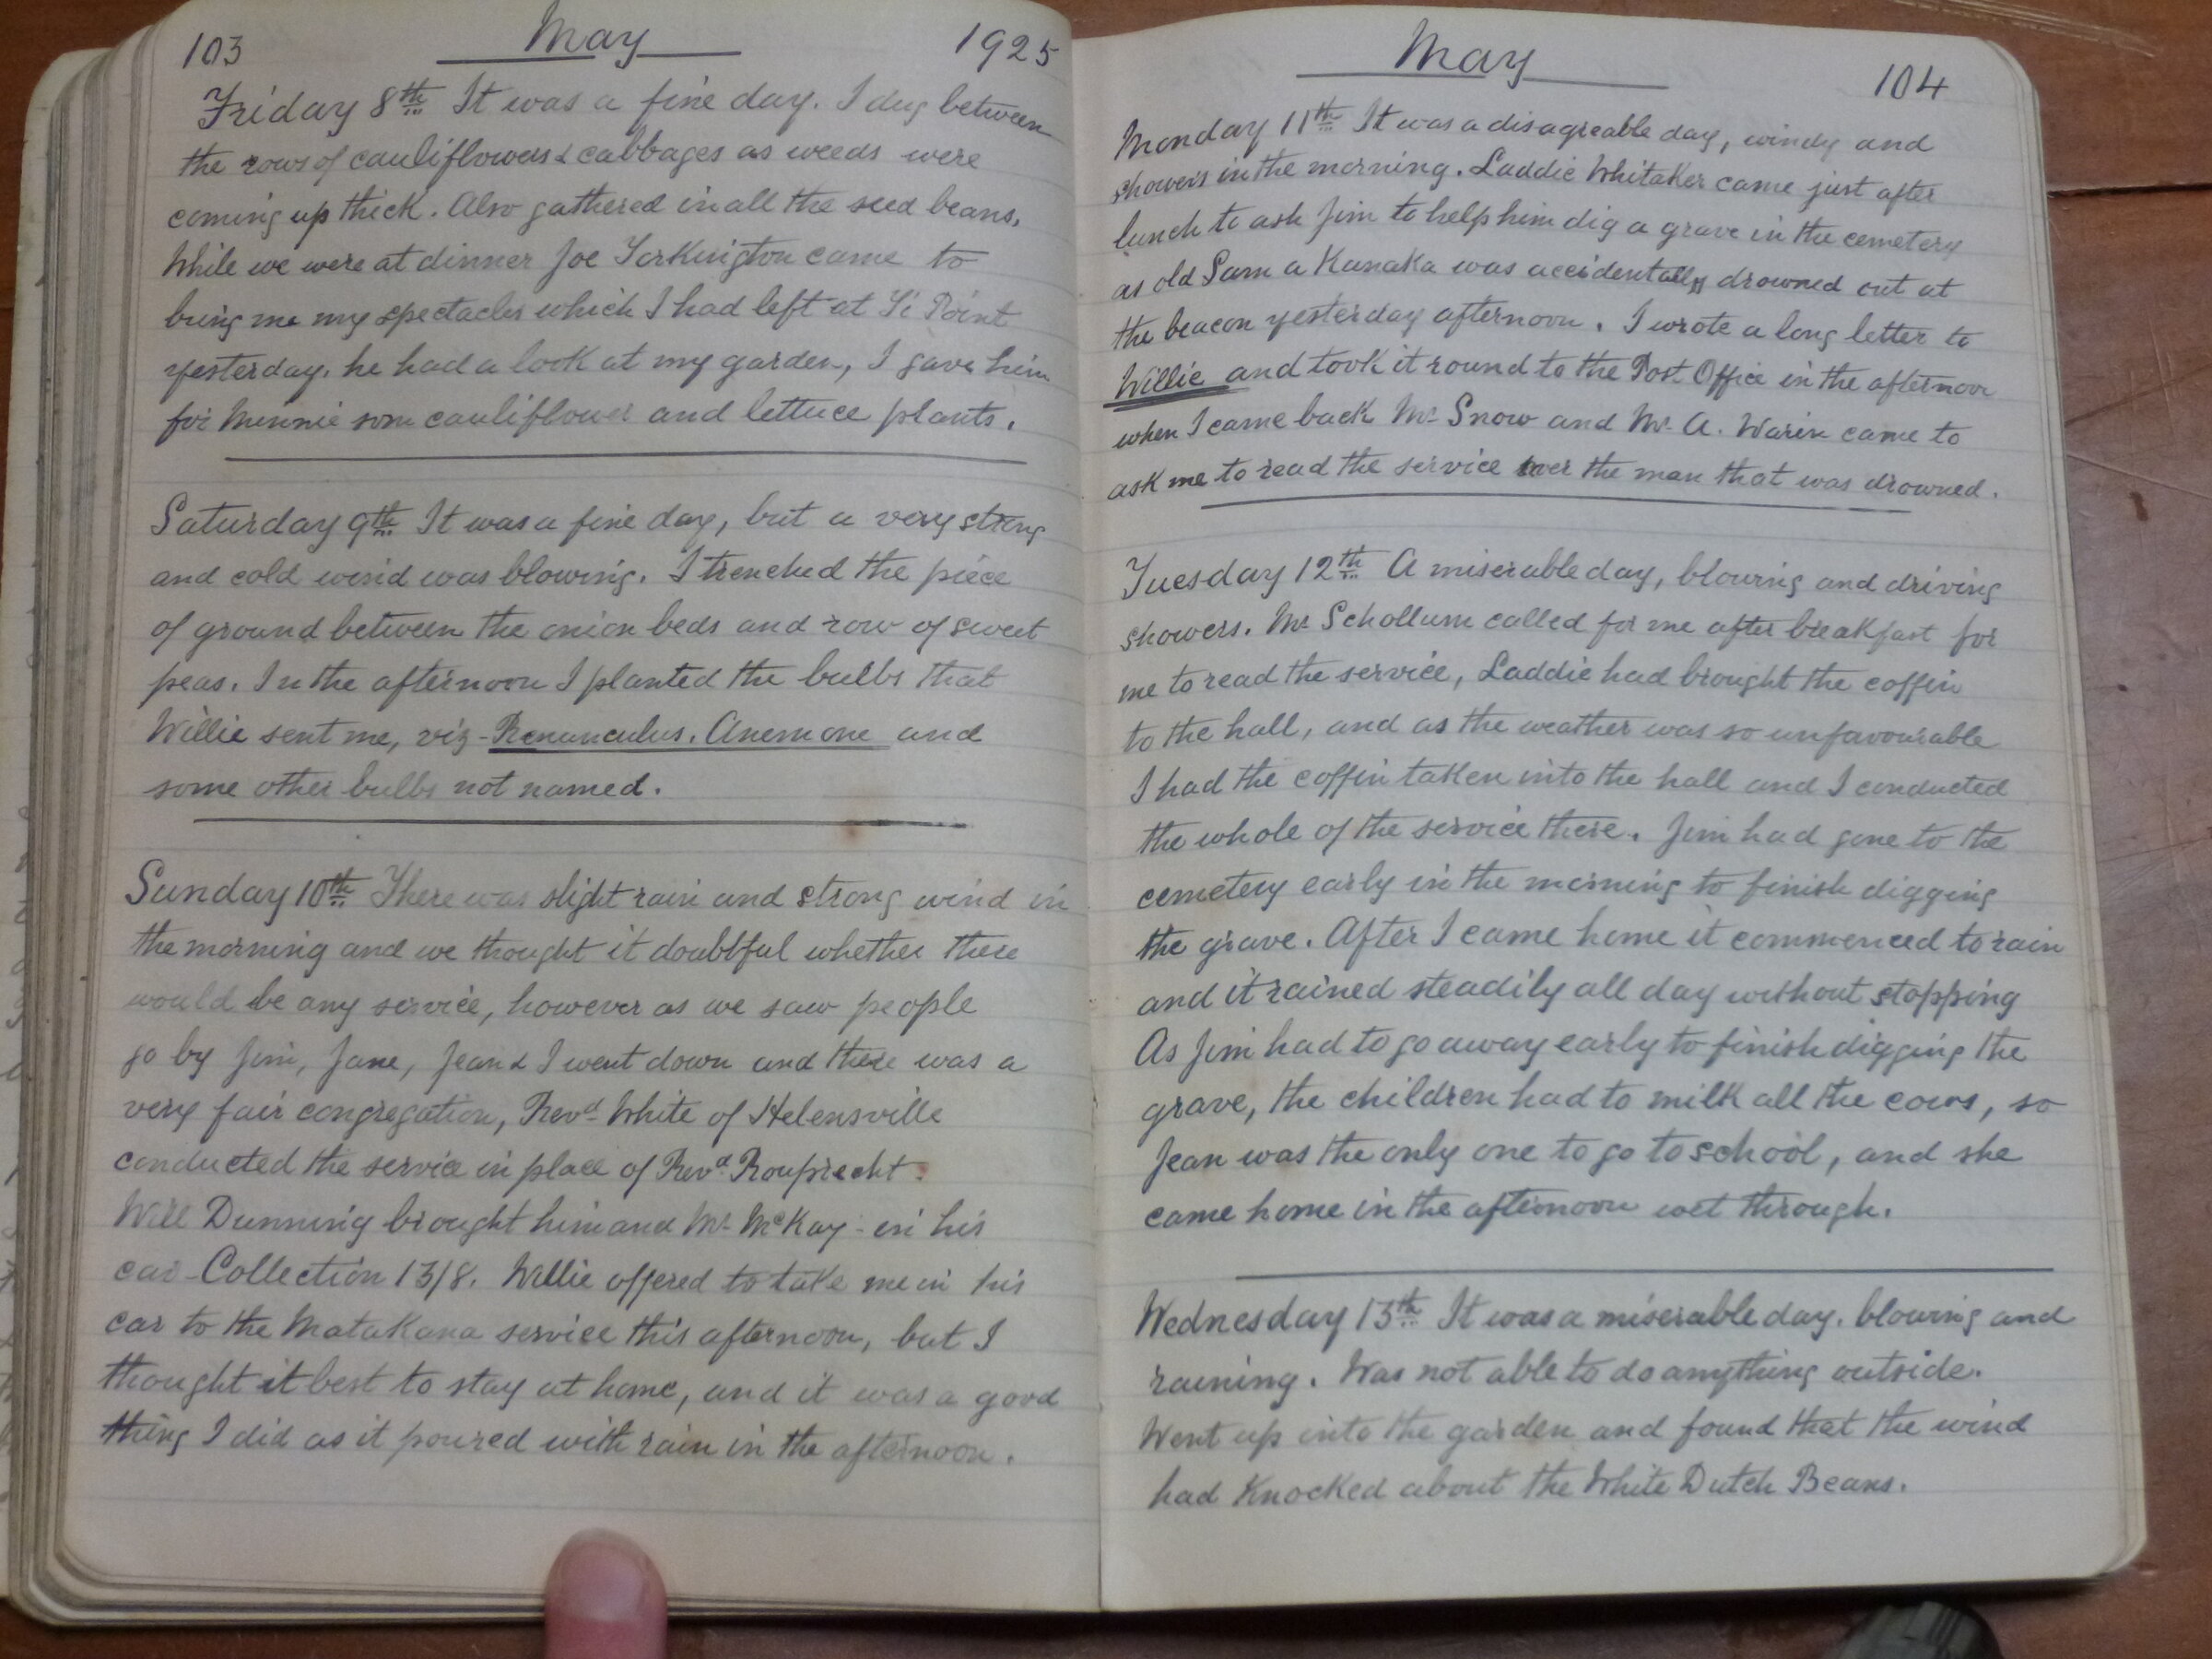 103 May 1925
Friday 8th It was a fine day. I dug between
the rows of cauliflowers & cabbages as weeds were
coming up thick. Also gathered in all the seed beans.
While we were at dinner Joe Torkington came to
bring me my spectacles which I had left at Ti Point
yesterday. he had a look at my garden, I gave him
for Minnie som cauliflower and lettuce plants.
Saturday 9th It was a fine day, but a very strong
and cold wind was blowing. I trenched the piece
of ground between the onion beds and row of sweet
peas. In the afternoon I planted the bulbs that
Willie sent me, viz - Renunculus. Anemone and
some other bulbs not named.
Sunday 10th There was slight rain and strong wind in
the morning and we thought it doubtful whether there
would be any service, however as we saw people
go by Jim, Jane, Jean & I went down and there was a
very fair congregation, Revd White of Helensville
conducted the service in place of Revd. Rouprecht.
Will Dunning brought him and Mr McKay - in his
car - Collection 13/8. Willie offered to take me in his
car to the Matakana service this afternoon, but I
thought it best to stay at home, and it was a good
thing I did as it poured with rain in the afternoon.
May 104
Monday 11th It was a disagreable day, windy and
showers in the morning. Laddie Whitaker came just after
lunch to ask Jim to help him dig a grave in the cemetery
as old Sam a Kanaka was accidentally drowned out at
the beacon yesterday afternoon. I wrote a long letter to
Willie and took it round to the Post Office in the afternoon
when I came back Mr Snow and Mr A. Warin came to
ask me to read the service over the man that was drowned.
Tuesday 12th A miserable day, blowing and driving
showers. Mr Schollum called for me after breakfast for
me to read the service, Laddie had brought the coffin
to the hall, and as the weather was so unfavourable
I had the coffin taken into the hall and I conducted
the whole of the service there. Jim had gone to the
cemetery early in the morning to finish digging
the grave. After I came home it commenced to rain
and it rained steadily all day without stopping
As Jim had to go away early to finish digging the
grave, the children had to milk all the cows, so
Jean was the only one to go to school, and she
came home in the afternoon wet through.
Wednesday 13th It was a miserable day. blowing and
raining. Was not able to do anything outside.
Went up into the garden and found that the wind
had Knocked about the White Dutch Beans.